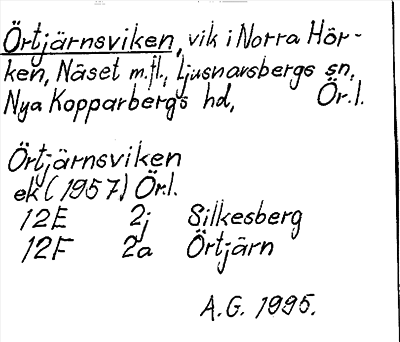 Örtjärnsviken, vik i Norra Hör-
ken, Näset m.fl., Ljusnarsbergs sn,
Nya Kopparbergs hd, Ör.l.
Örtjärnsviken
ek (1957) Ör.l.
12E 2j Silkesberg
12F 2a Örtjärn
A.G. 1995.